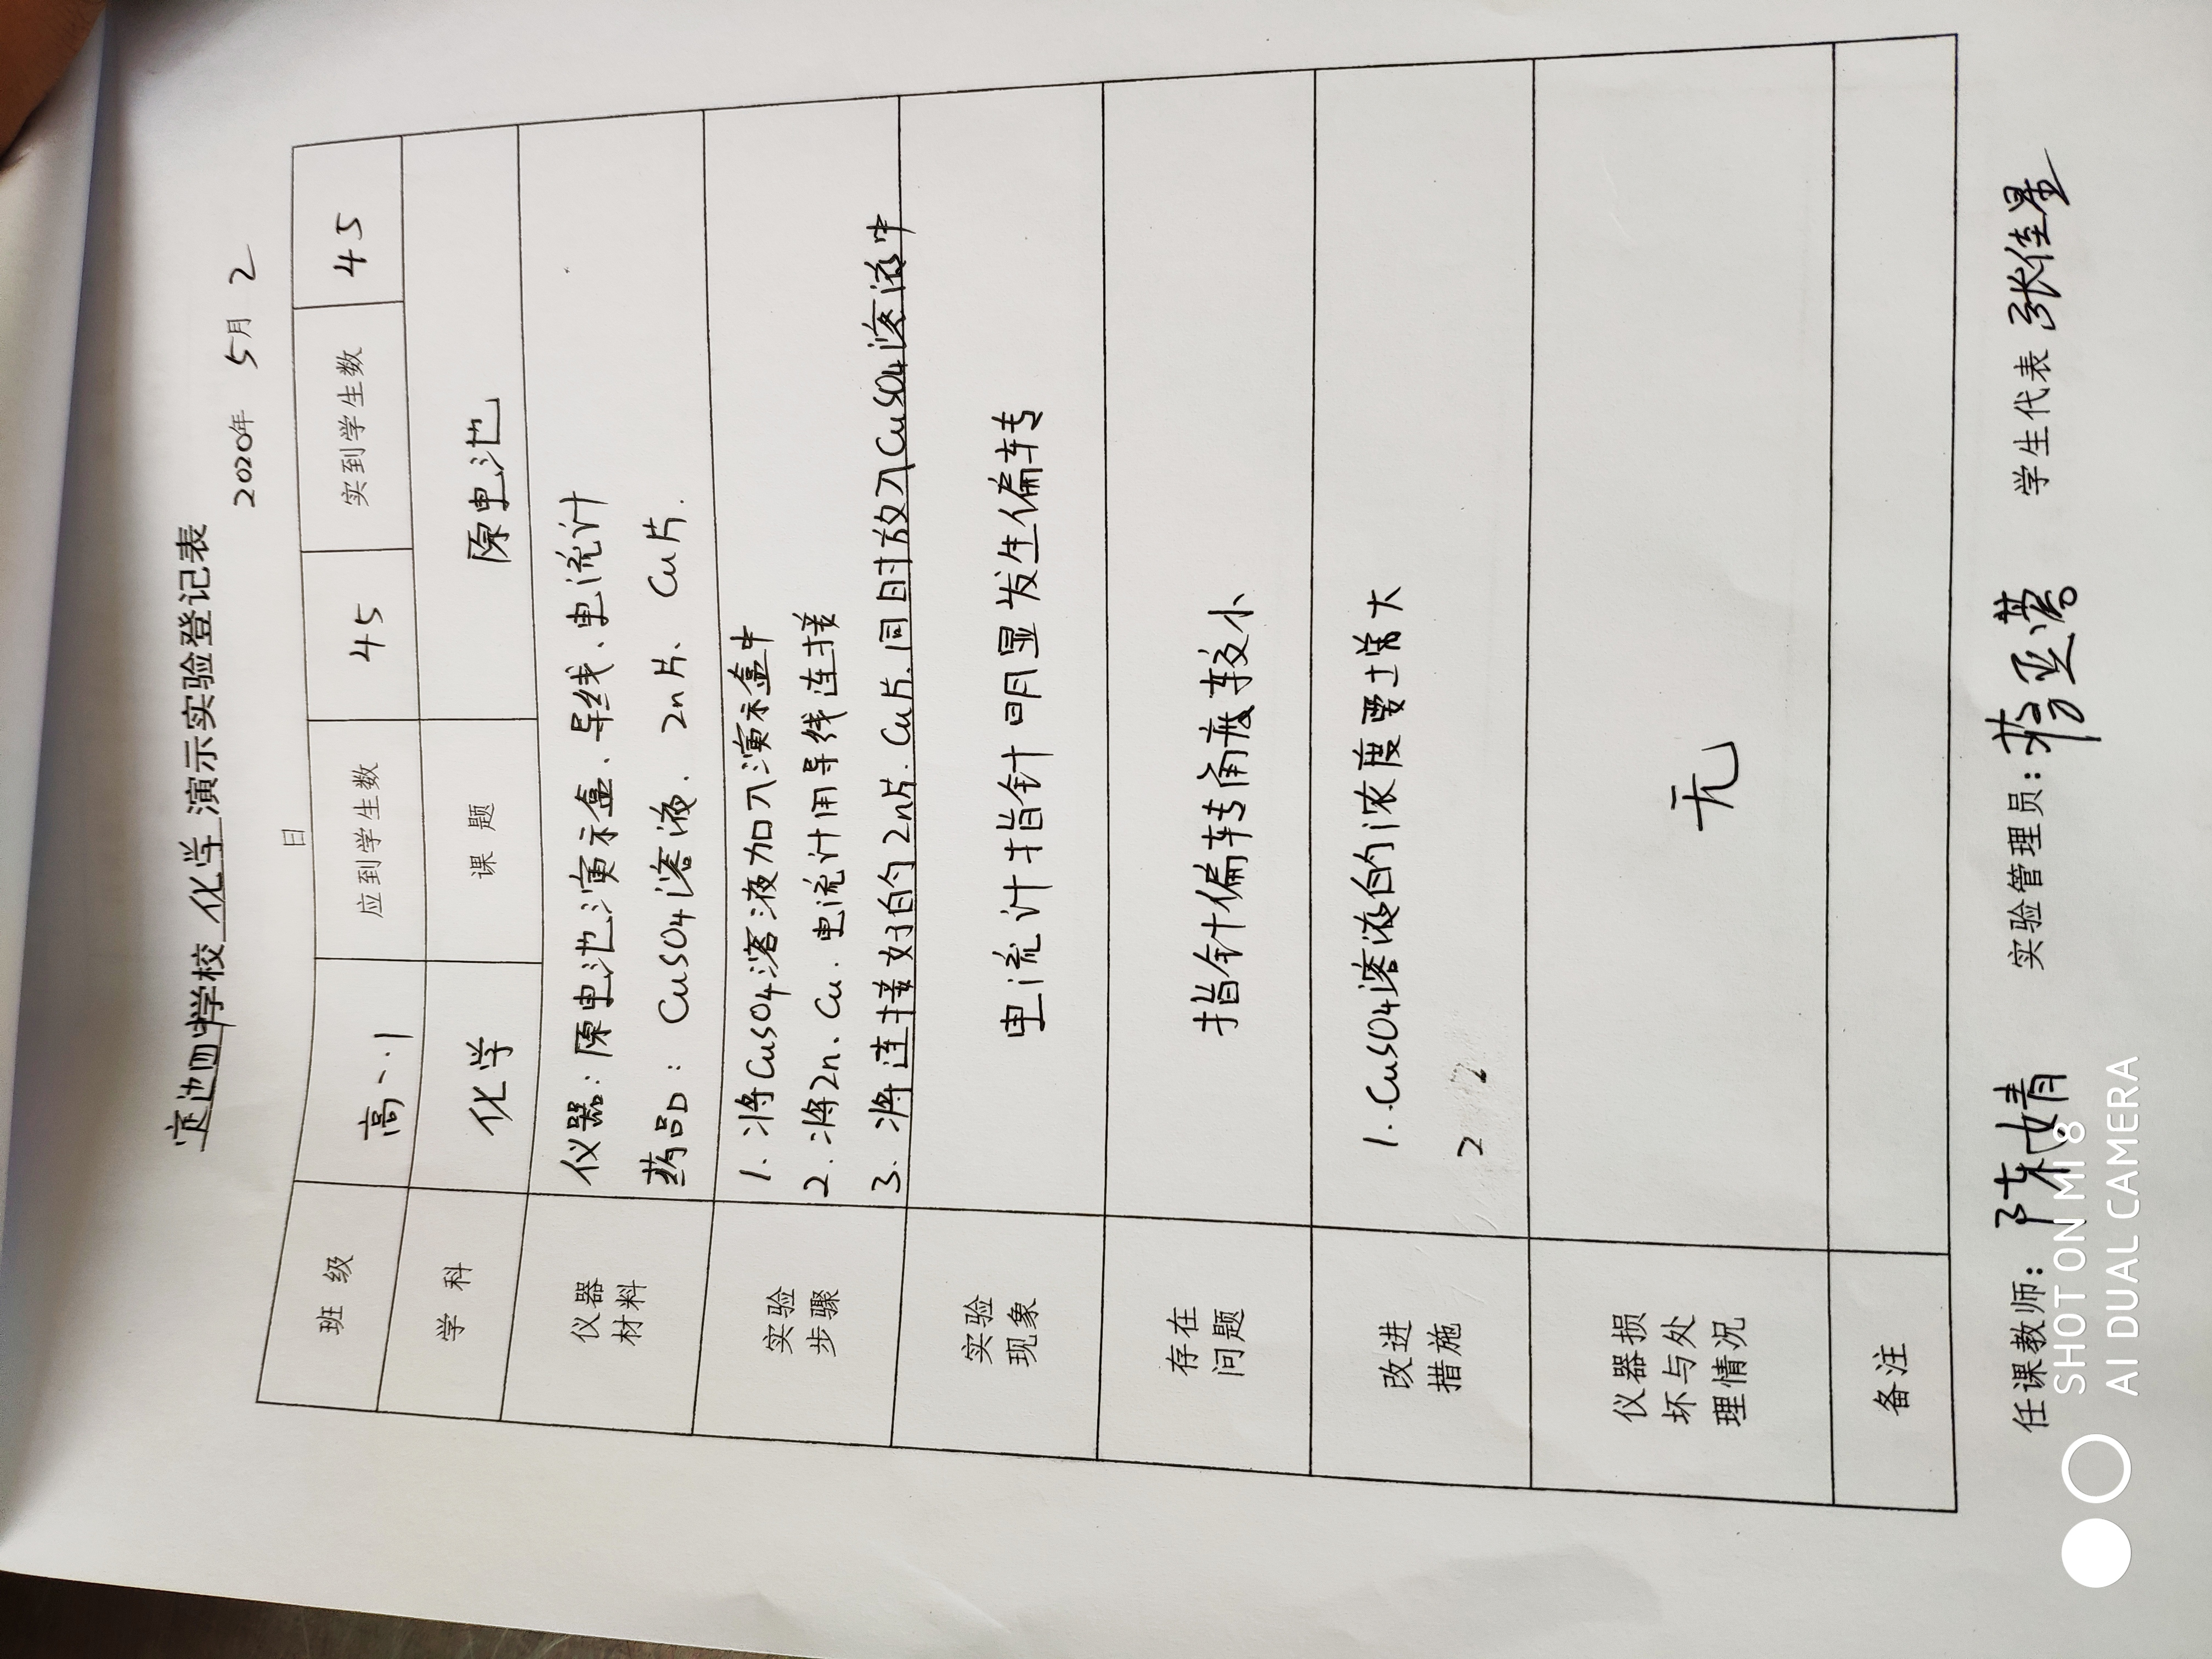 定边四中学校 化学 演示实验登记表
2020年 5月 2
日
班 级 高一.1 应到学生数 45 实到学生数 45
学 科 化学 课 题 原电池
仪器材料
仪器：原电池演示盒、导线、电流计
药品：CuSO4溶液、Zn片、Cu片.
实验步骤
1. 将CuSO4溶液加入演示盒中
2. 将Zn、Cu、电流计用导线连接
3. 将连接好的Zn片、Cu片同时放入CuSO4溶液中
实验现象
电流计指针明显发生偏转
存在问题
指针偏转角度较小
改进措施
1. CuSO4溶液的浓度要增大
2
仪器损坏与处理情况
无
备注
任课教师：陈婧 实验管理员： 学生代表 张佳星
SHOT ON MI 8
AI DUAL CAMERA